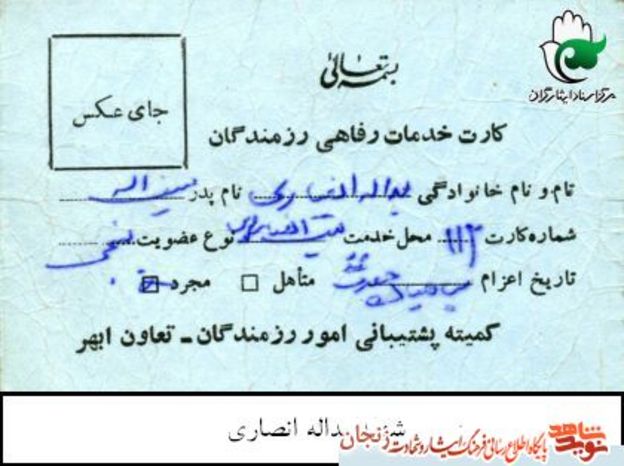 بسمه تعالی
مرکز اسناد ایثارگران
جای عکس
کارت خدمات رفاهی رزمندگان
نام و نام خانوادگی یداله انصاری نام پدر
شماره کارت ۱۱۳ محل خدمت نوع عضویت
تاریخ اعزام متأهل مجرد
کمیته پشتیبانی امور رزمندگان ـ تعاون ابهر
یداله انصاری
نوید شاهد پایگاه اطلاع رسانی فرهنگ ایثار و شهادت زنجان